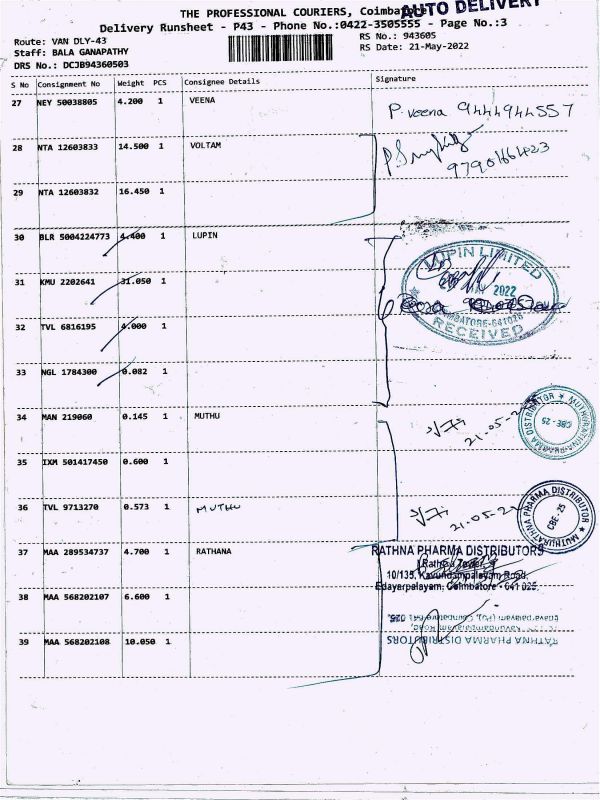 THE PROFESSIONAL COURIERS, Coimbat
AUTO DELIVERY
Delivery Runsheet - P43 - Phone No.:0422-3505555 - Page No.:3
Route: VAN DLY-43
RS No.: 943605
Staff: BALA GANAPATHY
RS Date: 21-May-2022
DRS No.: DCJB94360503
S No Consignment No Weight PCS Consignee Details Signature
27 NEY 50038805 4.200 1 VEENA P. veena 9444944557
28 NTA 12603833 14.500 1 VOLTAM
29 NTA 12603832 16.450 1
30 BLR 5004224773 4.400 1 LUPIN
LUPIN LIMITED
31 KMU 2202641 31.050 1
2022
COIMBATORE-641026
RECEIVED
32 TVL 6816195 4.000 1
33 NGL 1784300 0.082 1
34 MAN 219060 0.145 1 MUTHU
MUTHURATHNA PHARMA DISTRIBUTOR
CBE-25
35 IXM 501417450 0.600 1
36 TVL 9713270 0.573 1 MUTHU
MUTHURATHNA PHARMA DISTRIBUTOR
CBE-25
37 MAA 289534737 4.700 1 RATHANA
RATHNA PHARMA DISTRIBUTORS
10/135, Kavundampalayam Road,
Edayarpalayam, Coimbatore - 641 025.
38 MAA 568202107 6.600 1
39 MAA 568202108 10.050 1
RATHNA PHARMA DISTRIBUTORS